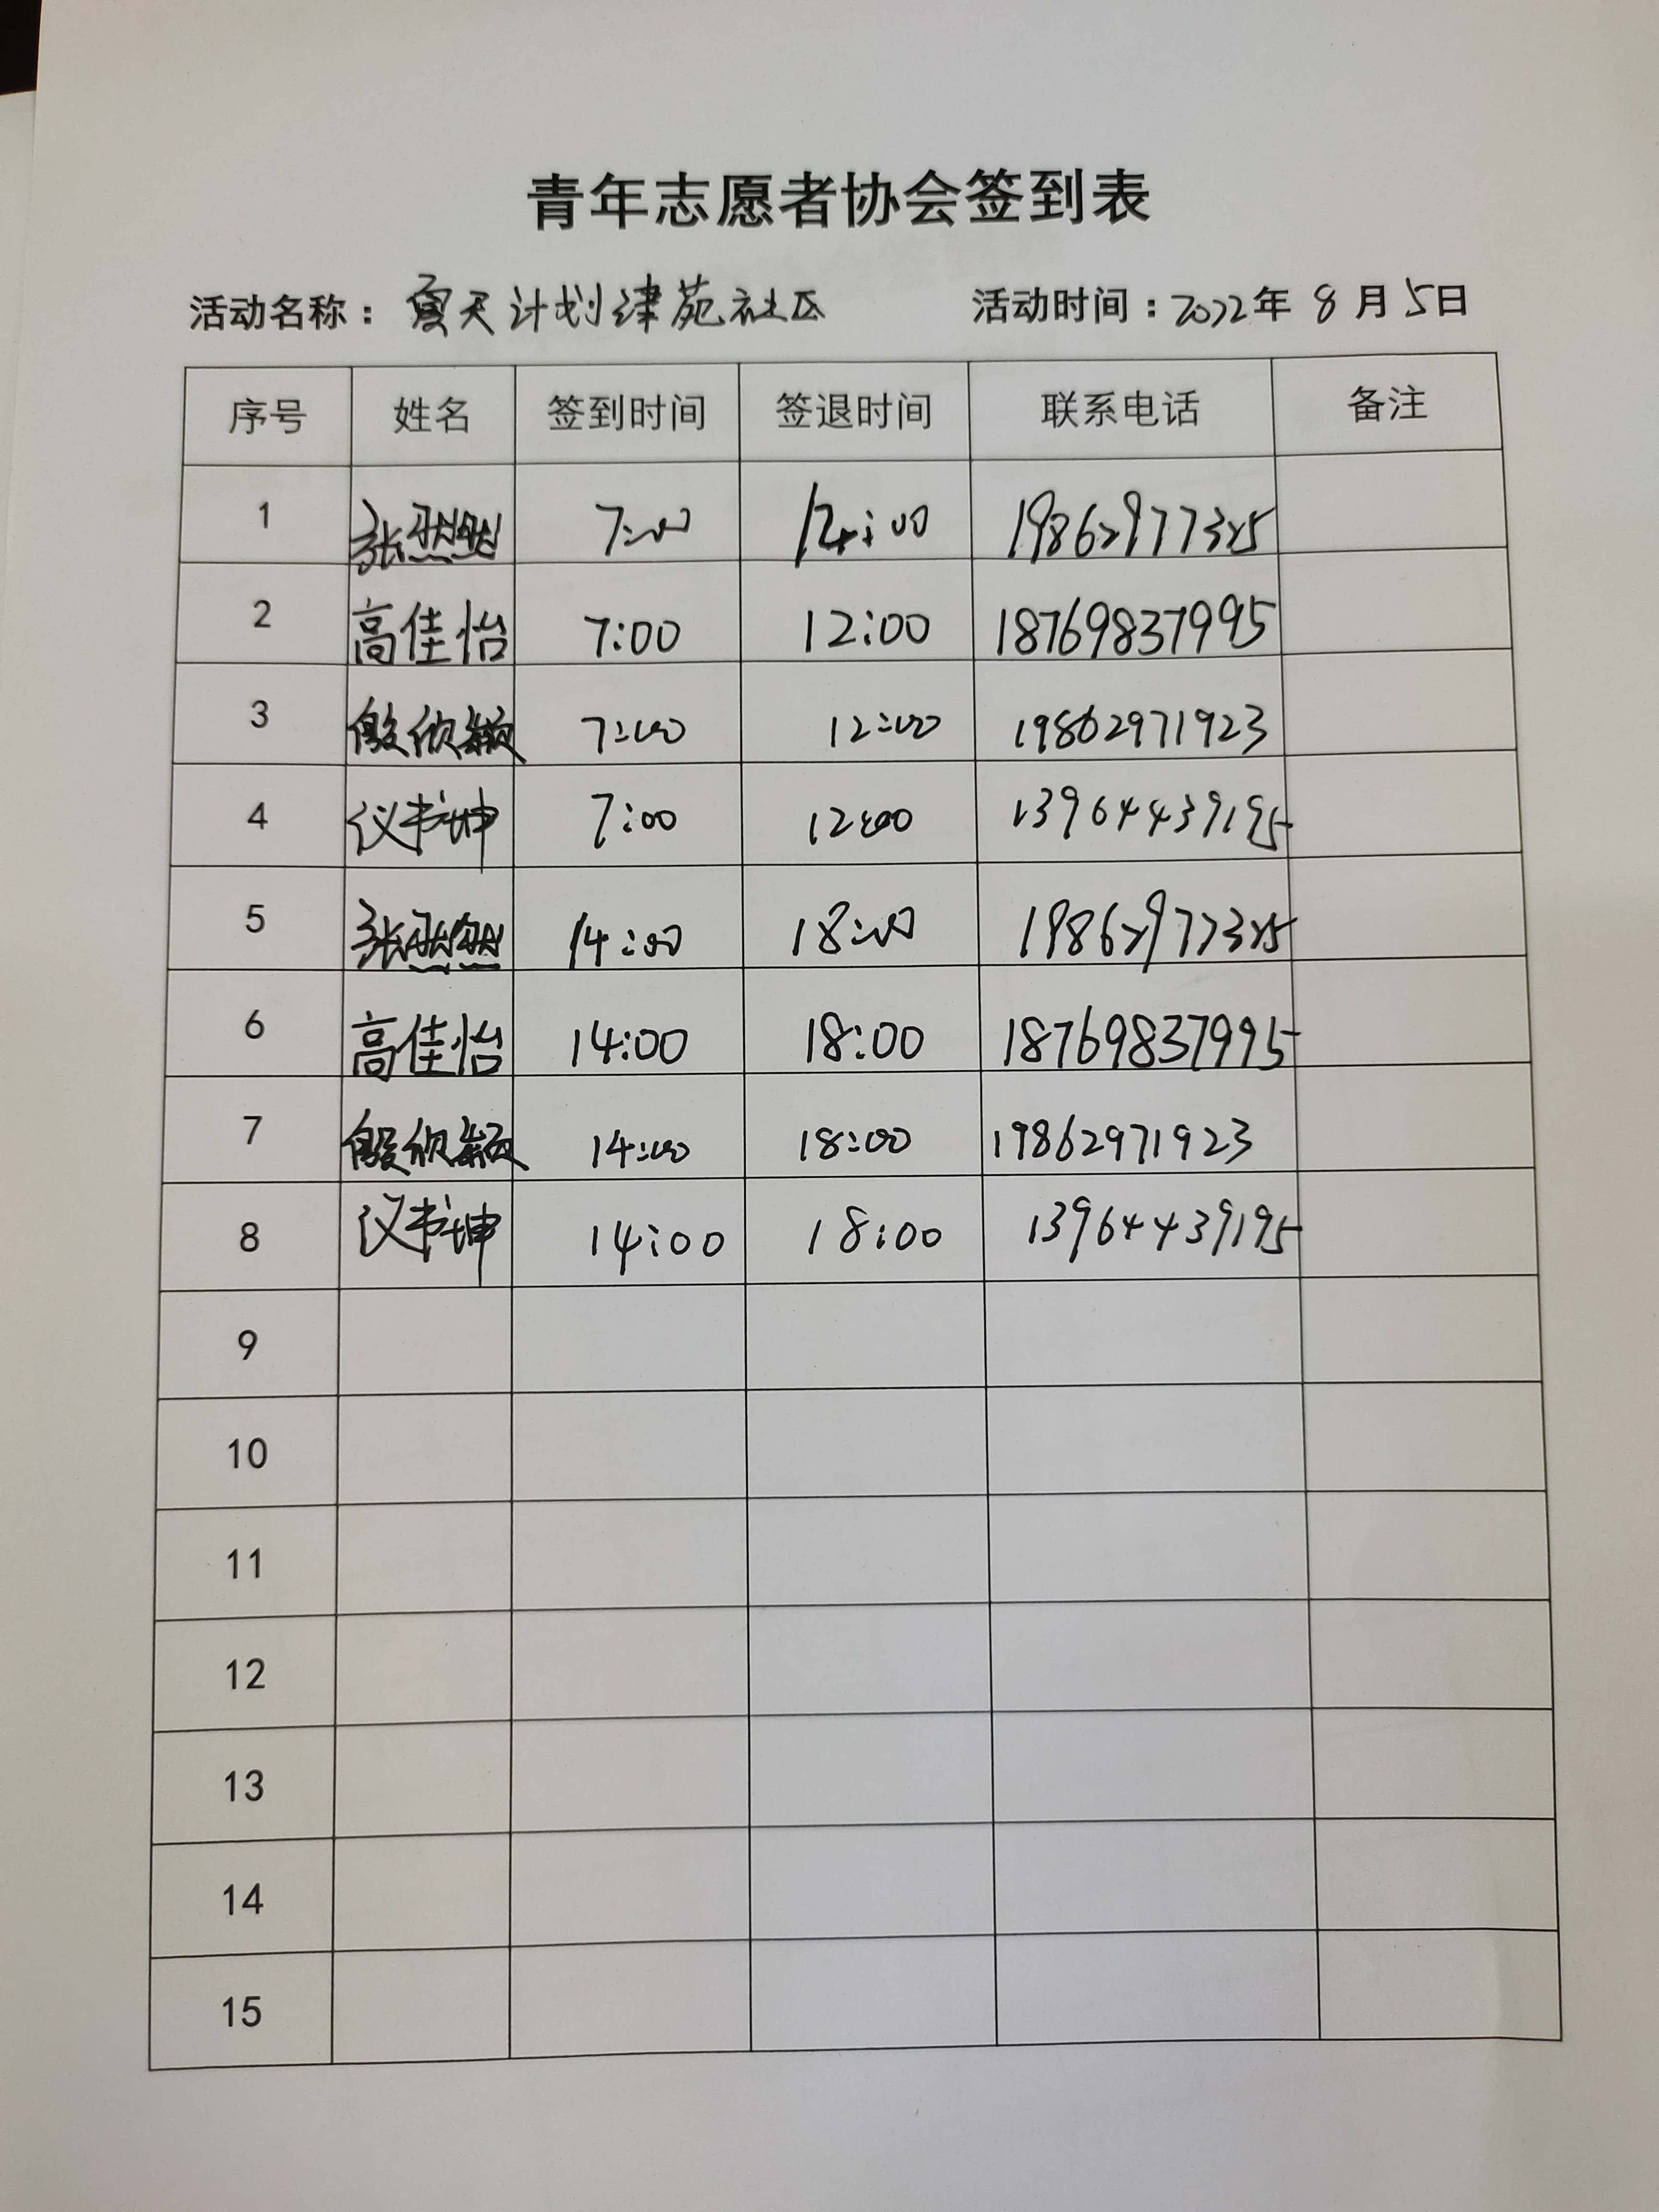 青年志愿者协会签到表
活动名称：夏天计划津苑社区 活动时间：2022年 8 月 5日
序号 姓名 签到时间 签退时间 联系电话 备注
1 张燃燃 7:00 12:00 19862977325
2 高佳怡 7:00 12:00 18769837995
3 殷欣颖 7:00 12:00 19862971923
4 仪书坤 7:00 12:00 13964439195
5 张燃燃 14:00 18:00 19862977325
6 高佳怡 14:00 18:00 18769837995
7 殷欣颖 14:00 18:00 19862971923
8 仪书坤 14:00 18:00 13964439195
9
10
11
12
13
14
15